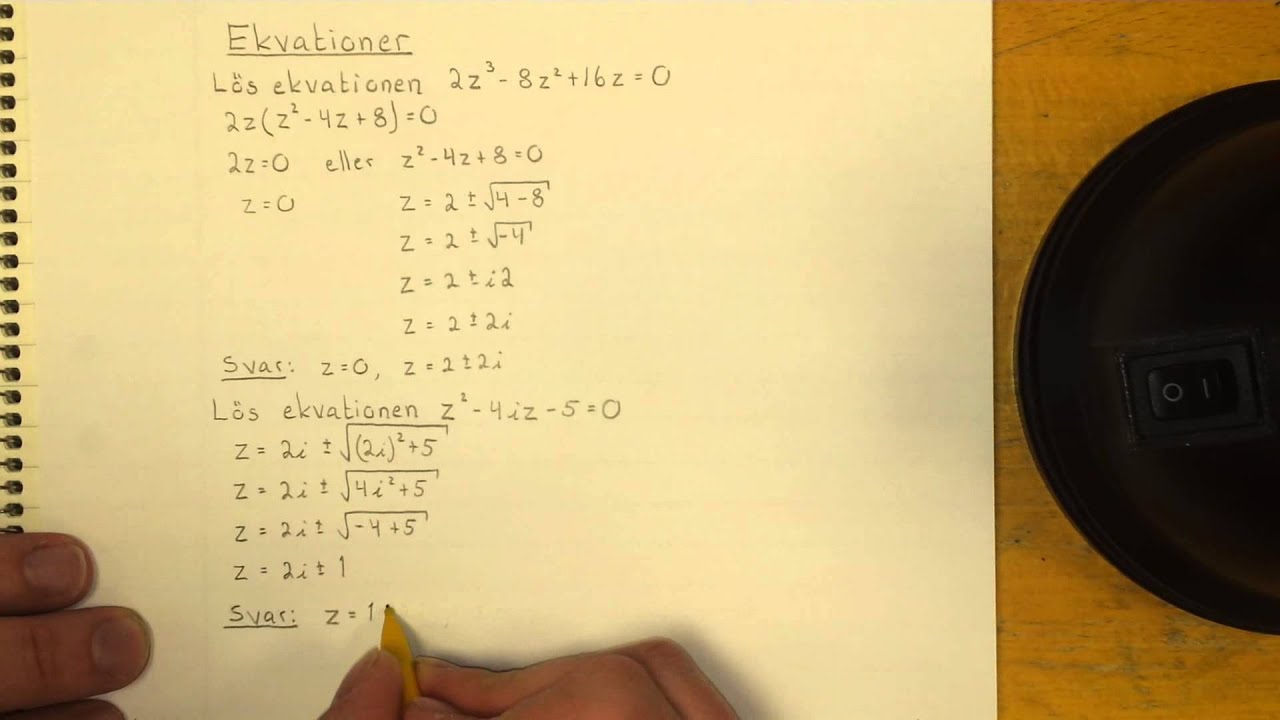 Ekvationer
Lös ekvationen 2z³ - 8z² + 16z = 0
2z(z² - 4z + 8) = 0
2z = 0 eller z² - 4z + 8 = 0
z = 0 z = 2 ± √(4 - 8)
z = 2 ± √(-4)
z = 2 ± i2
z = 2 ± 2i
Svar: z = 0, z = 2 ± 2i
Lös ekvationen z² - 4iz - 5 = 0
z = 2i ± √((2i)² + 5)
z = 2i ± √(4i² + 5)
z = 2i ± √(-4 + 5)
z = 2i ± 1
Svar: z = 1